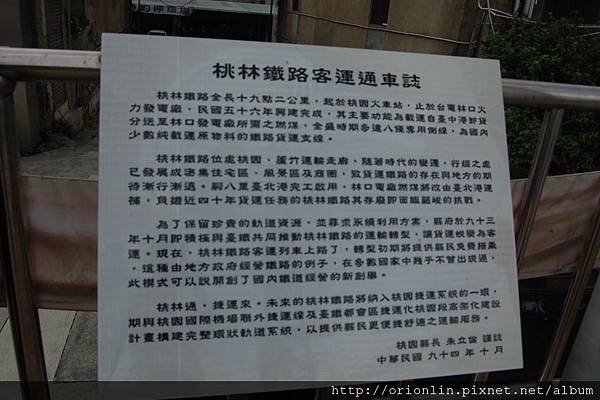 桃林鐵路客運通車誌
桃林鐵路全長十九點二公里，起於桃園火車站，止於台電林口火
力發電廠，民國五十六年興建完成，其主要功能為載運自臺中港卸貨
分送至林口發電廠所需之燃煤，全盛時期多達八條專用側線，為國內
少數純載運原物料的鐵路貨運支線。
桃林鐵路位處桃園、蘆竹運輸走廊，隨著時代的變遷，行經之處
已發展成密集住宅區、風景區及商圈，致貨運鐵路的存在與地方的期
待漸行漸遠。嗣八里臺北港完工啟用，林口電廠燃煤將改由臺北港運
補，負擔近四十年貨運任務的桃林鐵路其存廢即面臨嚴峻的挑戰。
為了保留珍貴的軌道資源，並尋求永續利用方案，縣府於九十三
年十月即積極與臺鐵共同推動桃林鐵路的運輸轉型，讓貨運蛻變為客
運。現在，桃林鐵路客運列車上路了，轉型初期將提供縣民免費搭乘
，這種由地方政府經營鐵路的例子，在多數國家中幾乎不曾出現過，
此模式可以說開創了國內鐵道經營的新創舉。
桃林通，捷運來。未來的桃林鐵路將納入桃園捷運系統的一環，
期與桃園國際機場聯外捷運線及臺鐵都會區捷運化桃園段高架化建設
計畫構建完整環狀軌道系統，以提供縣民更便捷舒適之運輸服務。
桃園縣長 朱立倫 謹誌
中華民國 九十四年 十月
http://orionlin.pixnet.net/album